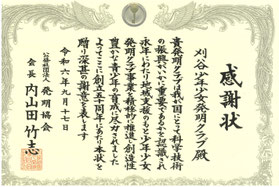 感謝状
刈谷少年少女発明クラブ殿
貴発明クラブは我が国にとって科学技術
の振興がいかに重要であるかを認識され
永年にわたり地域支援のもと少年少女
発明クラブ事業を積極的に推進し創造性
豊かな青少年の育成に尽力されました
よってここに創立五十周年にあたり本状を
贈り深甚の謝意を表します
令和六年九月十七日
公益社団法人発明協会
会長 内山田竹志